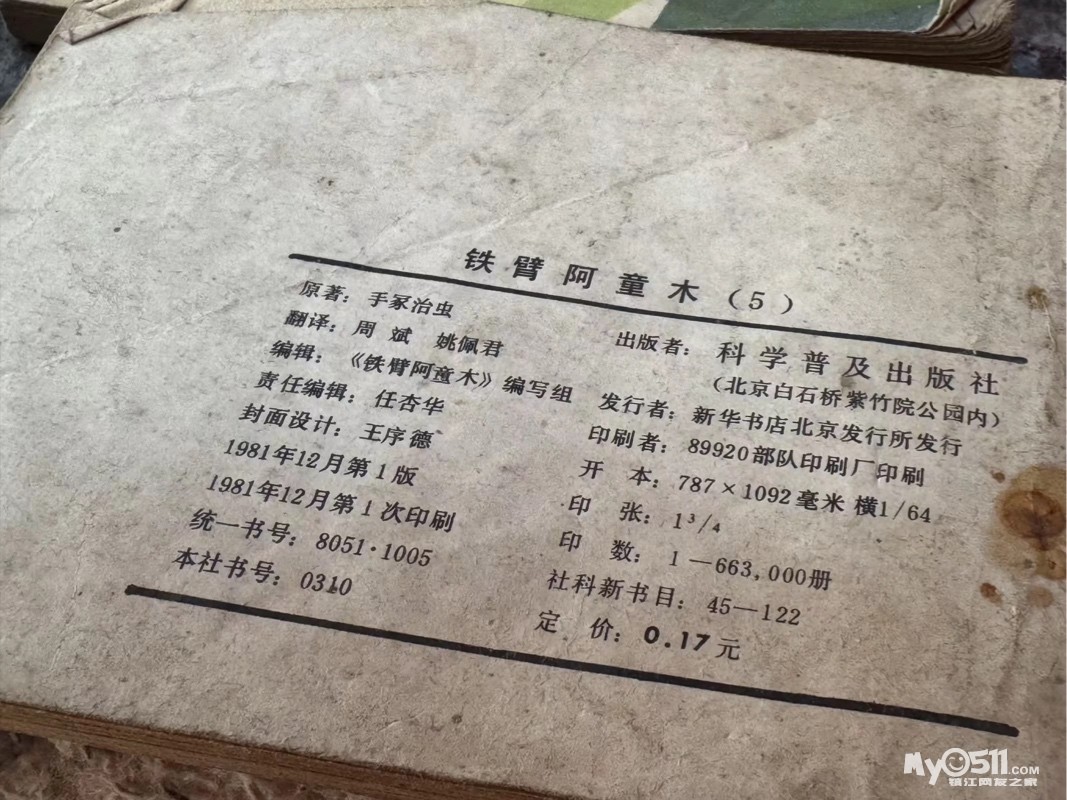 铁臂阿童木（5）
原著：手冢治虫
翻译：周 斌 姚佩君
编辑：《铁臂阿童木》编写组
责任编辑：任杏华
封面设计：王序德
1981年12月第1版
1981年12月第1次印刷
统一书号：8051·1005
本社书号：0310
出版者：科学普及出版社
（北京白石桥紫竹院公园内）
发行者：新华书店北京发行所发行
印刷者：89920部队印刷厂印刷
开 本：787×1092毫米 横1/64
印 张：1 3/4
印 数：1—663,000册
社科新书目：45—122
定 价：0.17元
My0511.COM
镇江网友之家